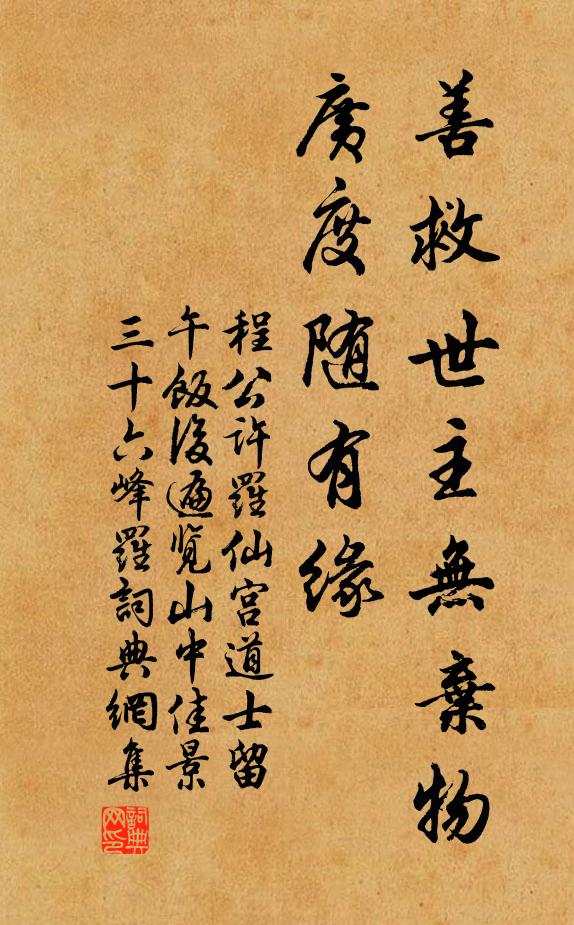 善救世主無棄物
廣度随有緣
程公許羅仙宫道士留
午飯後遍览山中佳景
三十六峰羅詞典網集
詞典
网印